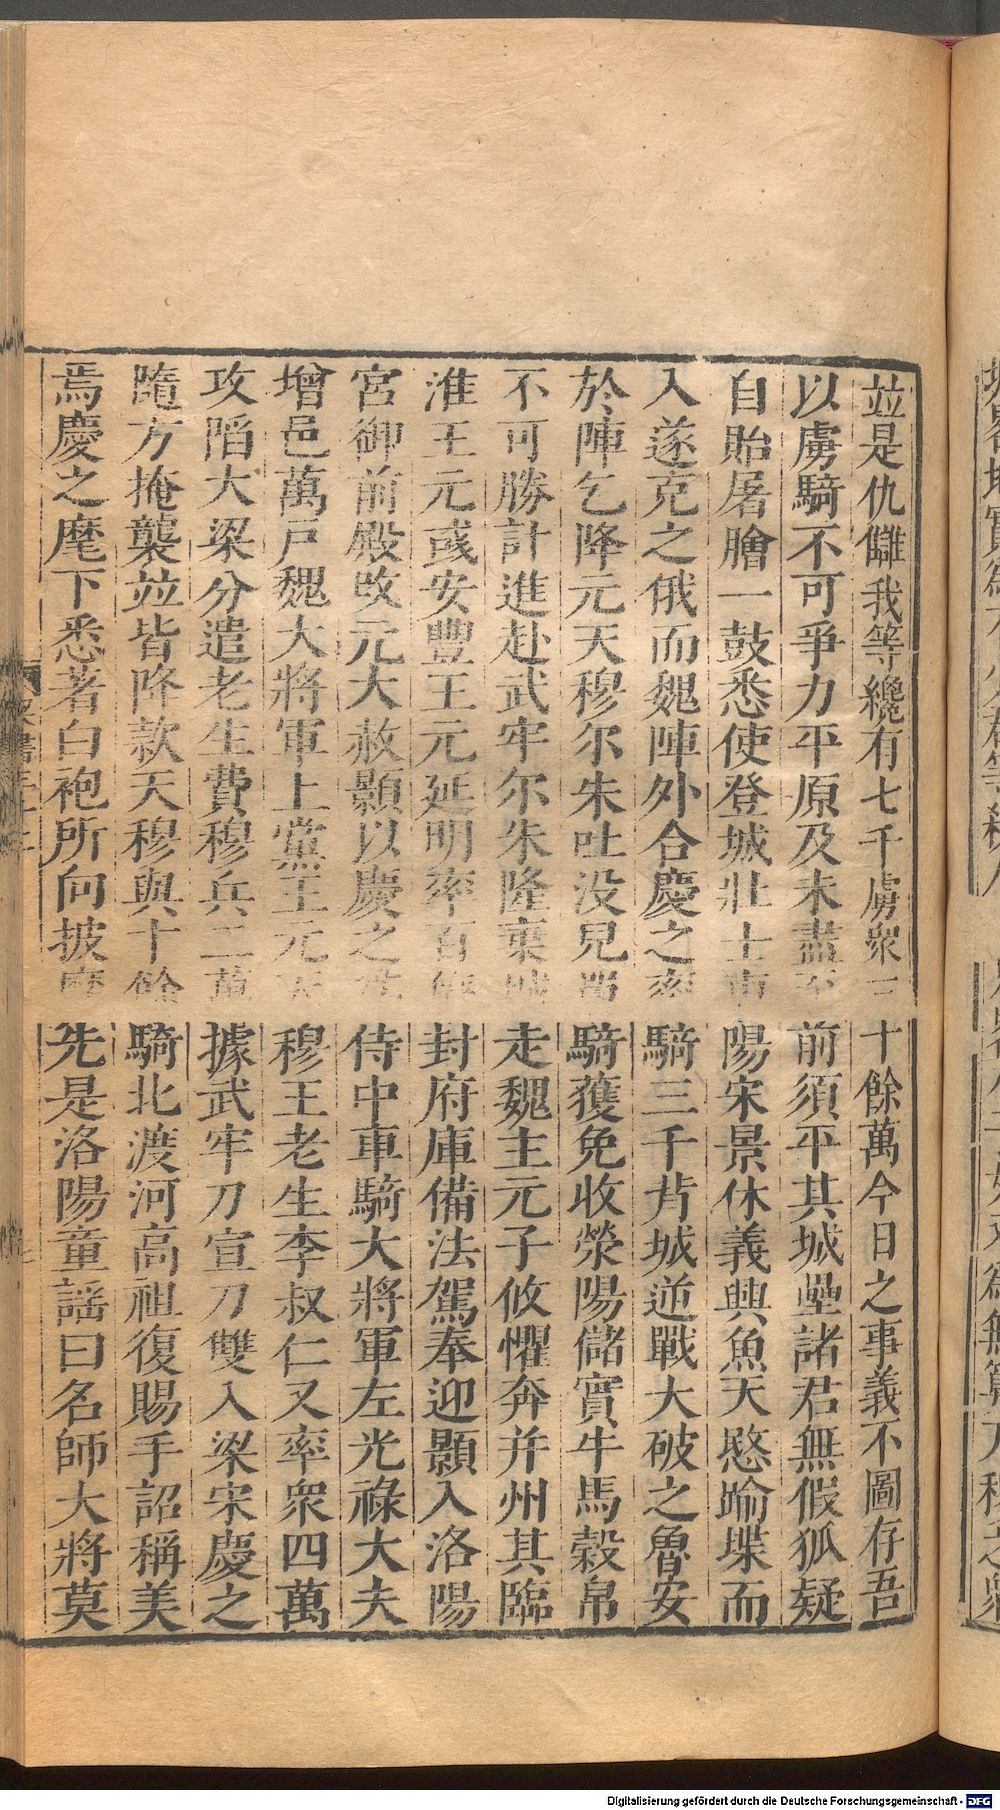 並是仇讎我等纔有七千虜衆三十餘萬今日之事義不圖存吾
以虜騎不可爭力平原及未盡至前須平其城壘諸君無假狐疑
自貽屠膾一鼓悉使登城壯士東陽宋景休義興魚天愍踰堞而
入遂克之俄而魏陣外合慶之率騎三千背城逆戰大破之魯安
於陣乞降元天穆尔朱吐没兒單騎獲免收滎陽儲實牛馬榖帛
不可勝計進赴武牢尔朱隆棄城走魏主元子攸懼奔并州其臨
淮王元彧安豐王元延明率百僚封府庫備法駕奉迎顥入洛陽
宮御前殿改元大赦顥以慶之爲侍中車騎大將軍左光祿大夫
增邑萬戶魏大將軍上黨王元天穆王老生李叔仁又率衆四萬
攻陷大梁分遣老生費穆兵二萬據武牢刀宣刀雙入梁宋慶之
隨方掩襲並皆降款天穆與十餘騎北渡河高祖復賜手詔稱美
焉慶之麾下悉著白袍所向披靡先是洛陽童謡曰名師大將莫
Digitalisierung gefördert durch die Deutsche Forschungsgemeinschaft - DFG